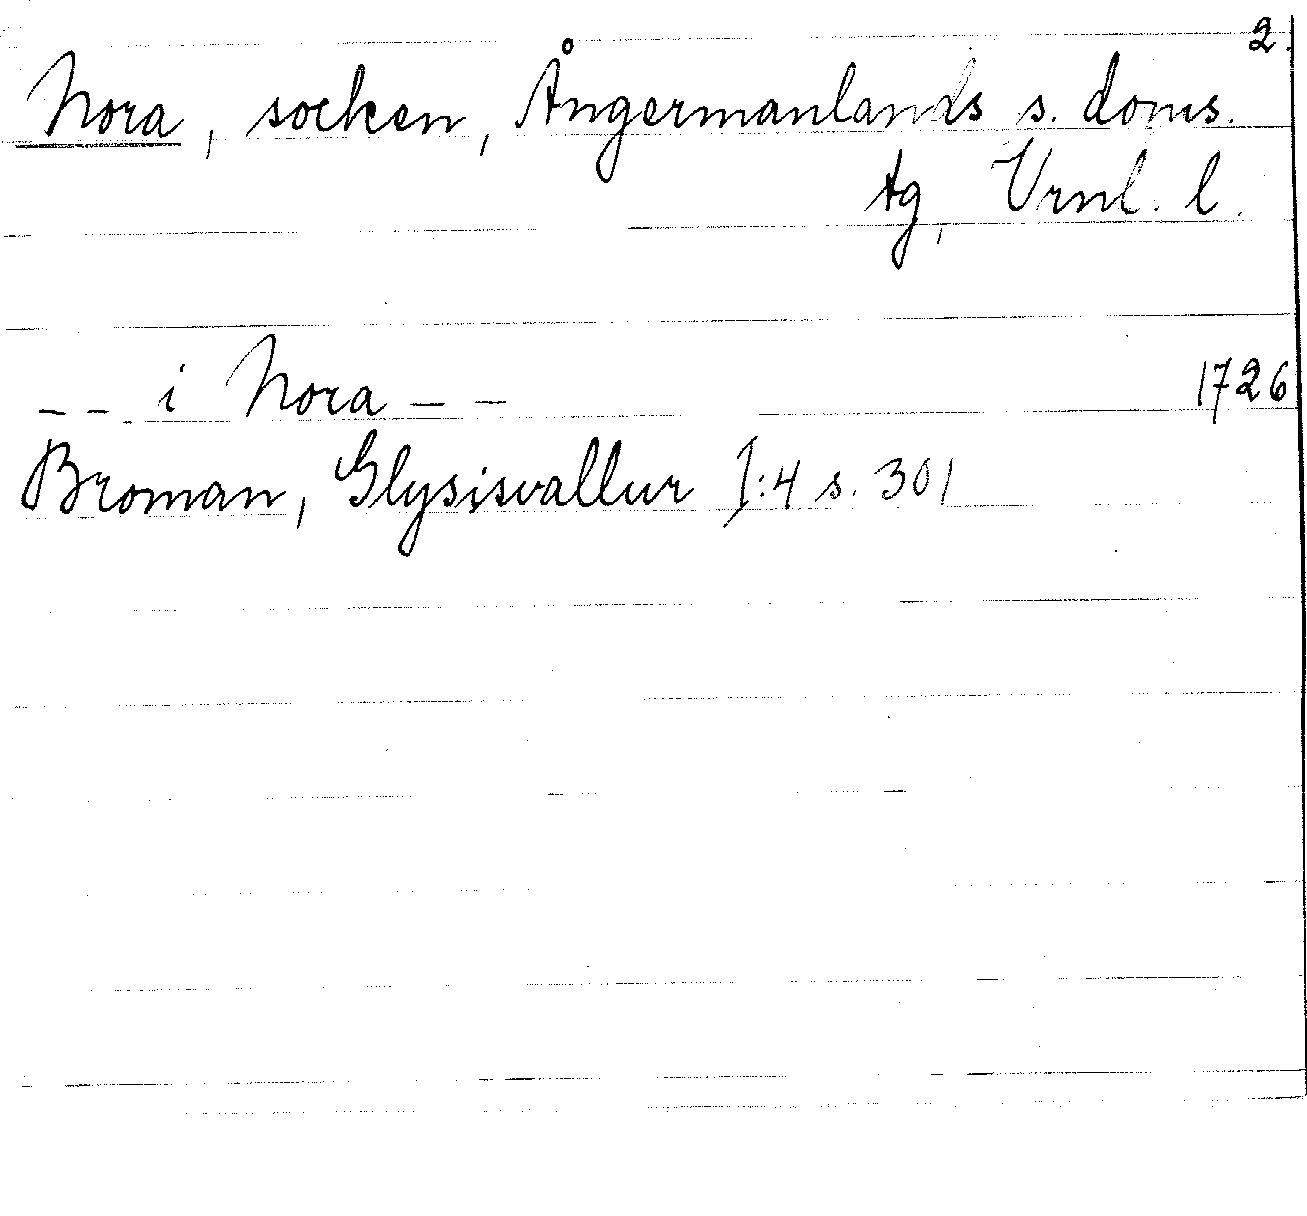 2.
Nora, socken, Ångermanlands s. doms.
tg, Vrnl. l.
_ _ i Nora _ _ 1726
Broman, Glysisvallur I:4 s. 301